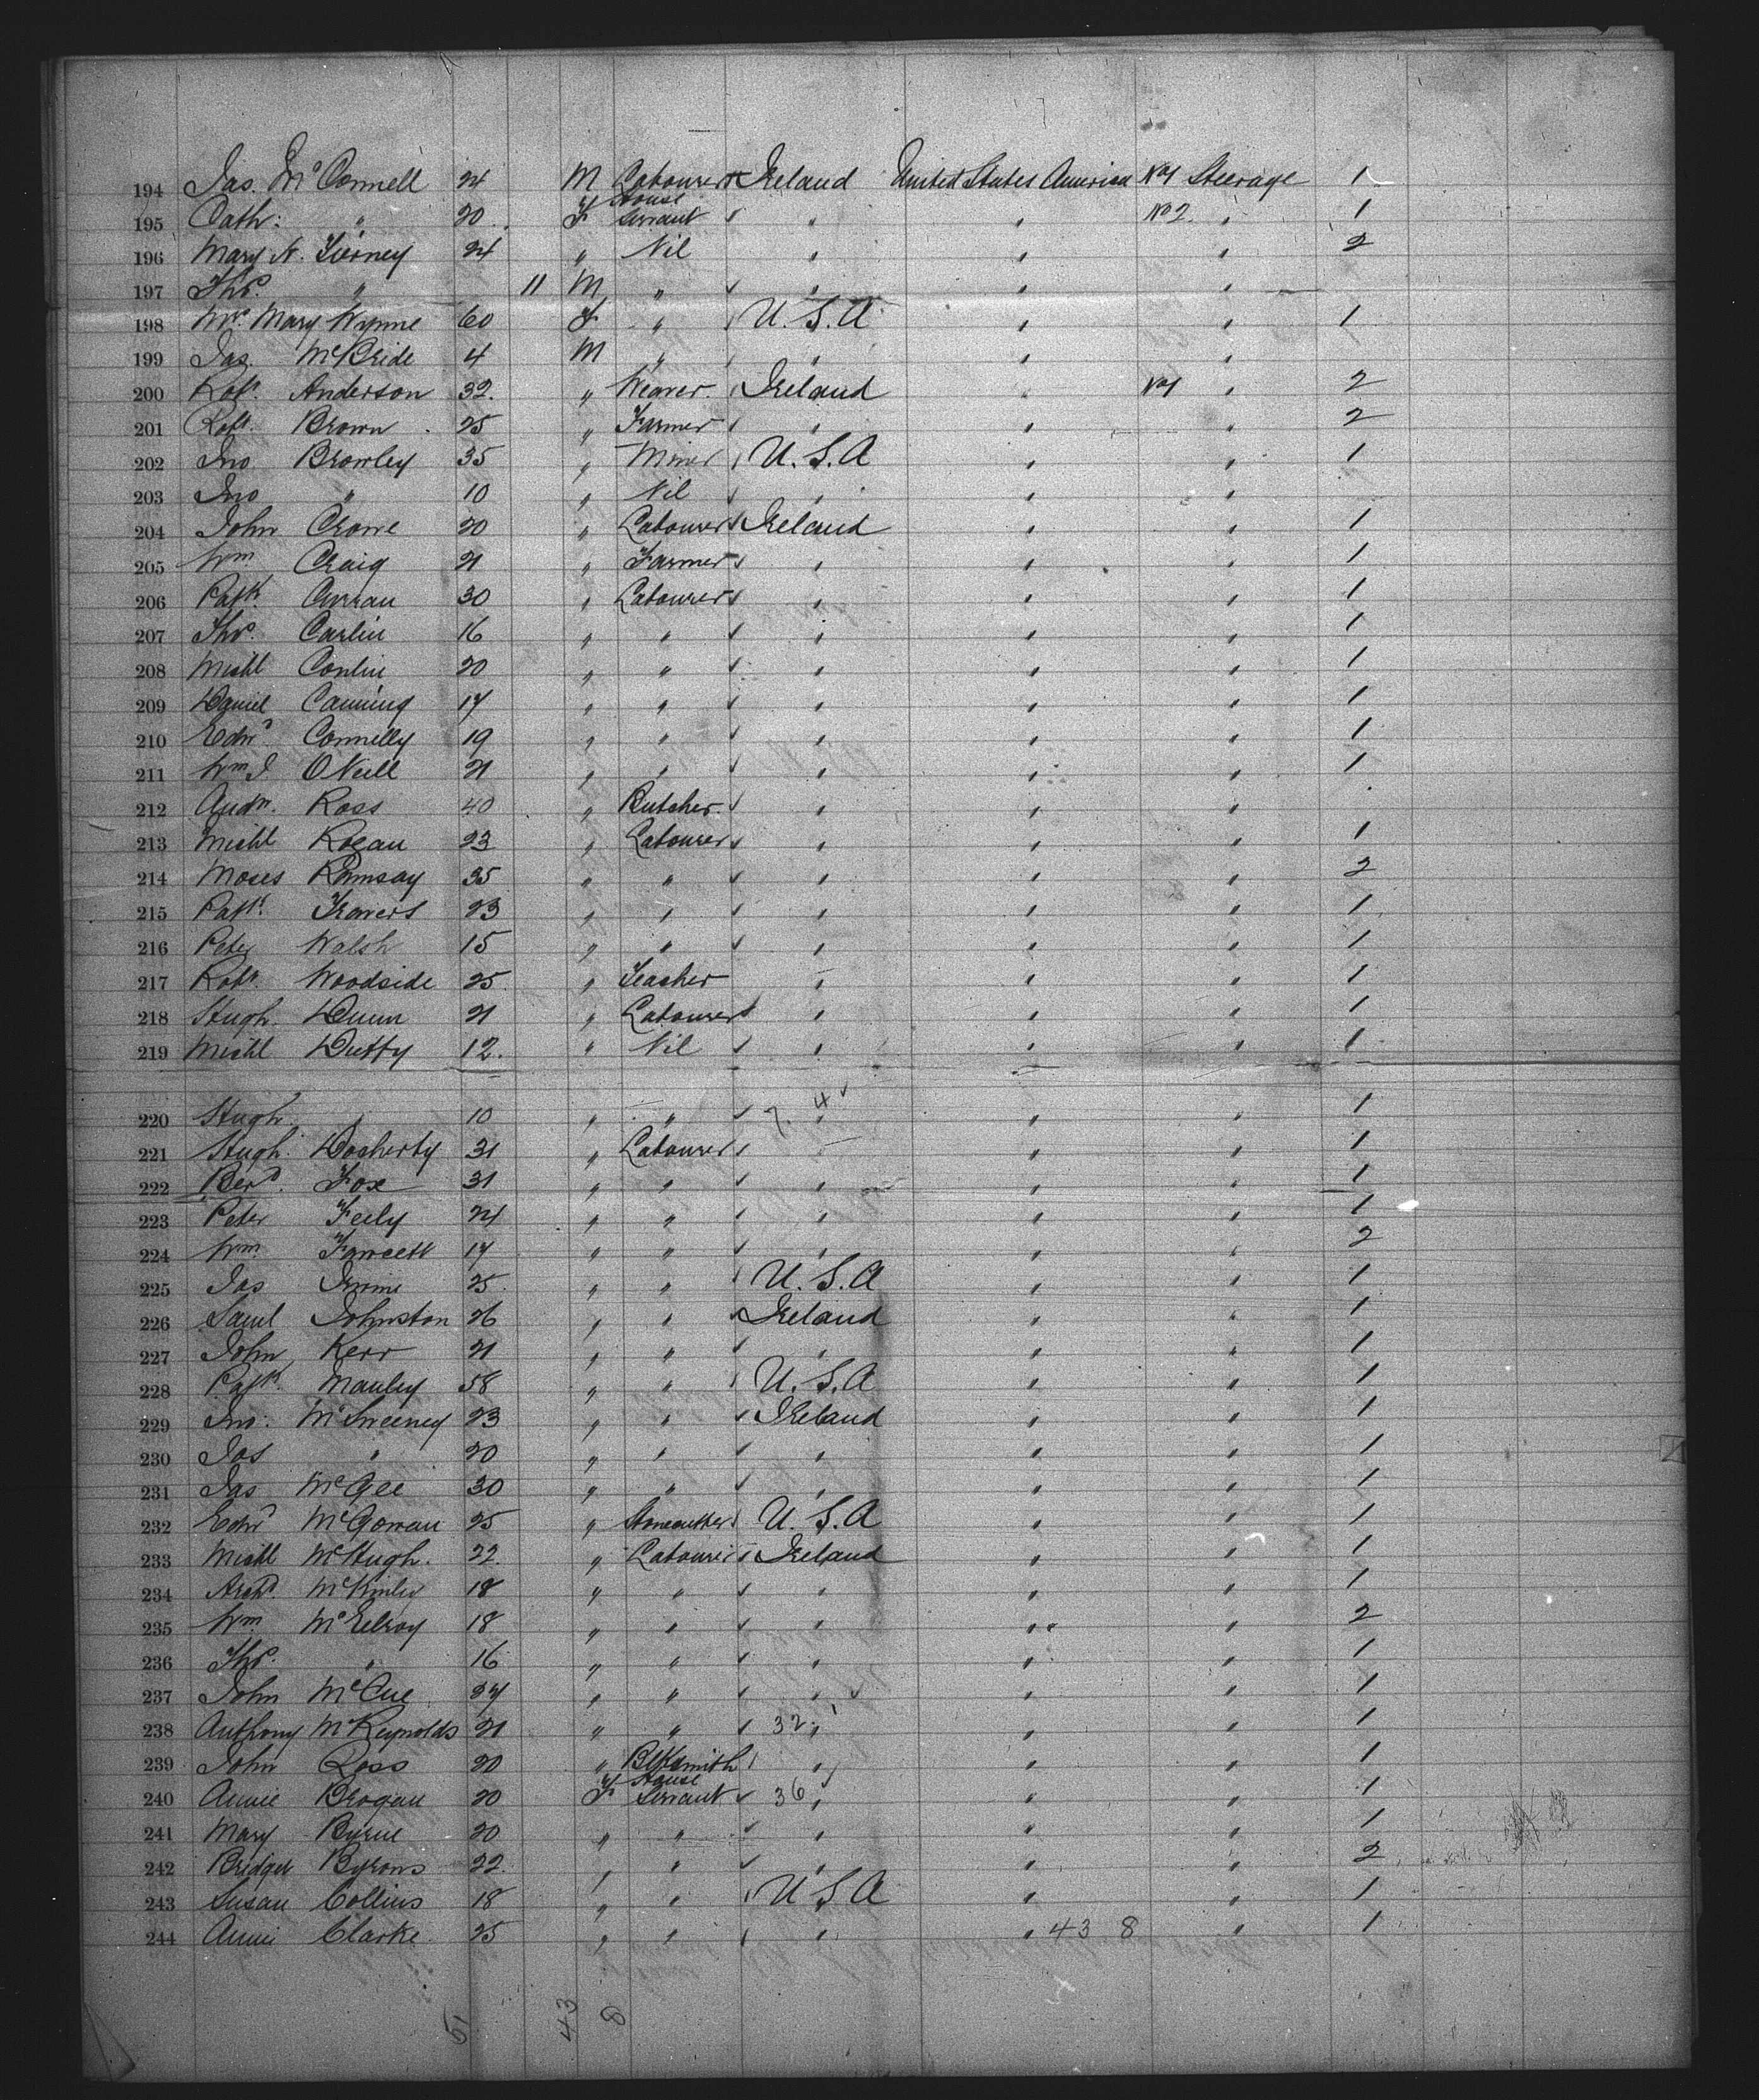 194 Jas. McConnell 24 M Labourer Ireland United States America No1 Steerage 1
195 Cath: " 20 F House Servant " " No2 " 1
196 Mary A. Tierney 24 " Nil " " " 2
197 Thos. " 11 M " " " "
198 Mrs. Mary Wynne 60 F " U.S.A " " 1
199 Jas McBride 4 M " " " "
200 Robt. Anderson 32 " Weaver Ireland " No1 " 2
201 Robt. Brown 25 " Farmer " " " 2
202 Jno Browley 35 " Miner U.S.A " " 1
203 Jno " 10 " Nil " " "
204 John Crowe 20 " Labourer Ireland " " 1
205 Wm Craig 21 " Farmer " " " 1
206 Patk. Curran 30 " Labourer " " " 1
207 Thos. Carlin 16 " " " " " 1
208 Michl Conlin 20 " " " " " 1
209 Daniel Canning 17 " " " " " 1
210 Edwd Connelly 19 " " " " " 1
211 Wm J. ONeill 21 " " " " " 1
212 Andw. Ross 40 " Butcher " " "
213 Michl Rogan 23 " Labourer " " " 1
214 Moses Ramsay 35 " " " " " 2
215 Patk. Travers 23 " " " " " 1
216 Peter Walsh 15 " " " " " 1
217 Robt. Woodside 25 " Teacher " " " 1
218 Hugh Dunn 21 " Labourer " " " 1
219 Michl Duffy 12 " Nil " " " 1
220 Hugh " 10 " " 7. 4 " " " 1
221 Hugh Docherty 31 " Labourer " " " 1
222 Berd. Fox 31 " " " " " 1
223 Peter Feely 24 " " " " " 1
224 Wm. Fawcett 17 " " " " " 2
225 Jas 25 " " U.S.A " " 1
226 Saml Johnston 26 " " Ireland " " 1
227 John Kerr 21 " " " " " 1
228 Patk. Manley 58 " " U.S.A " " 1
229 Jno: McSweeney 23 " " Ireland " " 1
230 Jas " 20 " " " " " 1
231 Jas McGee 30 " " " " " 1
232 Edwd McGowan 25 " Stonecutter U.S.A " " 1
233 Michl McHugh. 22 " Labourer Ireland " " 1
234 Archd. McKinley 18 " " " " " 1
235 Wm. McElroy 18 " " " " " 2
236 Thos. " 16 " " " " " 1
237 John McCue " " " " " 1
238 Anthony McReynolds 21 " " 32 " " " 1
239 John Ross 20 " Blksmith " " " 1
240 Annie Brogan 20 F House Servant 36 " " " 1
241 Mary Byrne 20 " " " " " 1
242 Bridget Byrons 22 " " " " " 2
243 Susan Collins 18 " " U S A " " 1
244 Annie Clarke 25 " " " " 43 8 " 1
51 43 8